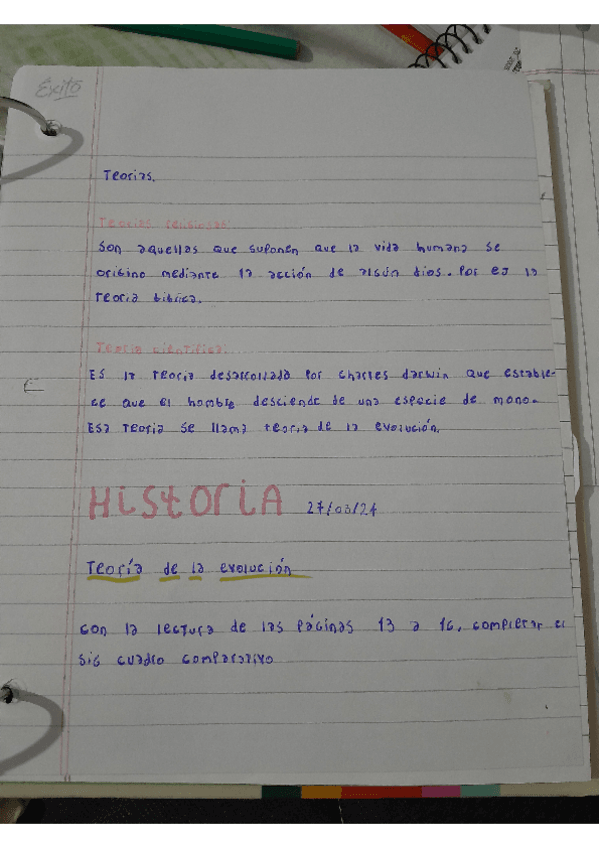 Éxito
Teorías.
Teorías religiosas:
Son aquellas que suponen que la vida humana se
origino mediante la acción de algún dios. Por ej la
teoria bíblica.
Teoria cientifica:
Es la teoria desarrollada por Charles darwin que estable-
ce que el hombre desciende de una especie de mono.
Esa teoria se llama teoria de la evolución.
HiStoriA 27/03/24
Teoría de la evolución
con la lectura de las páginas 13 a 16, completar el
sig cuadro comparativo